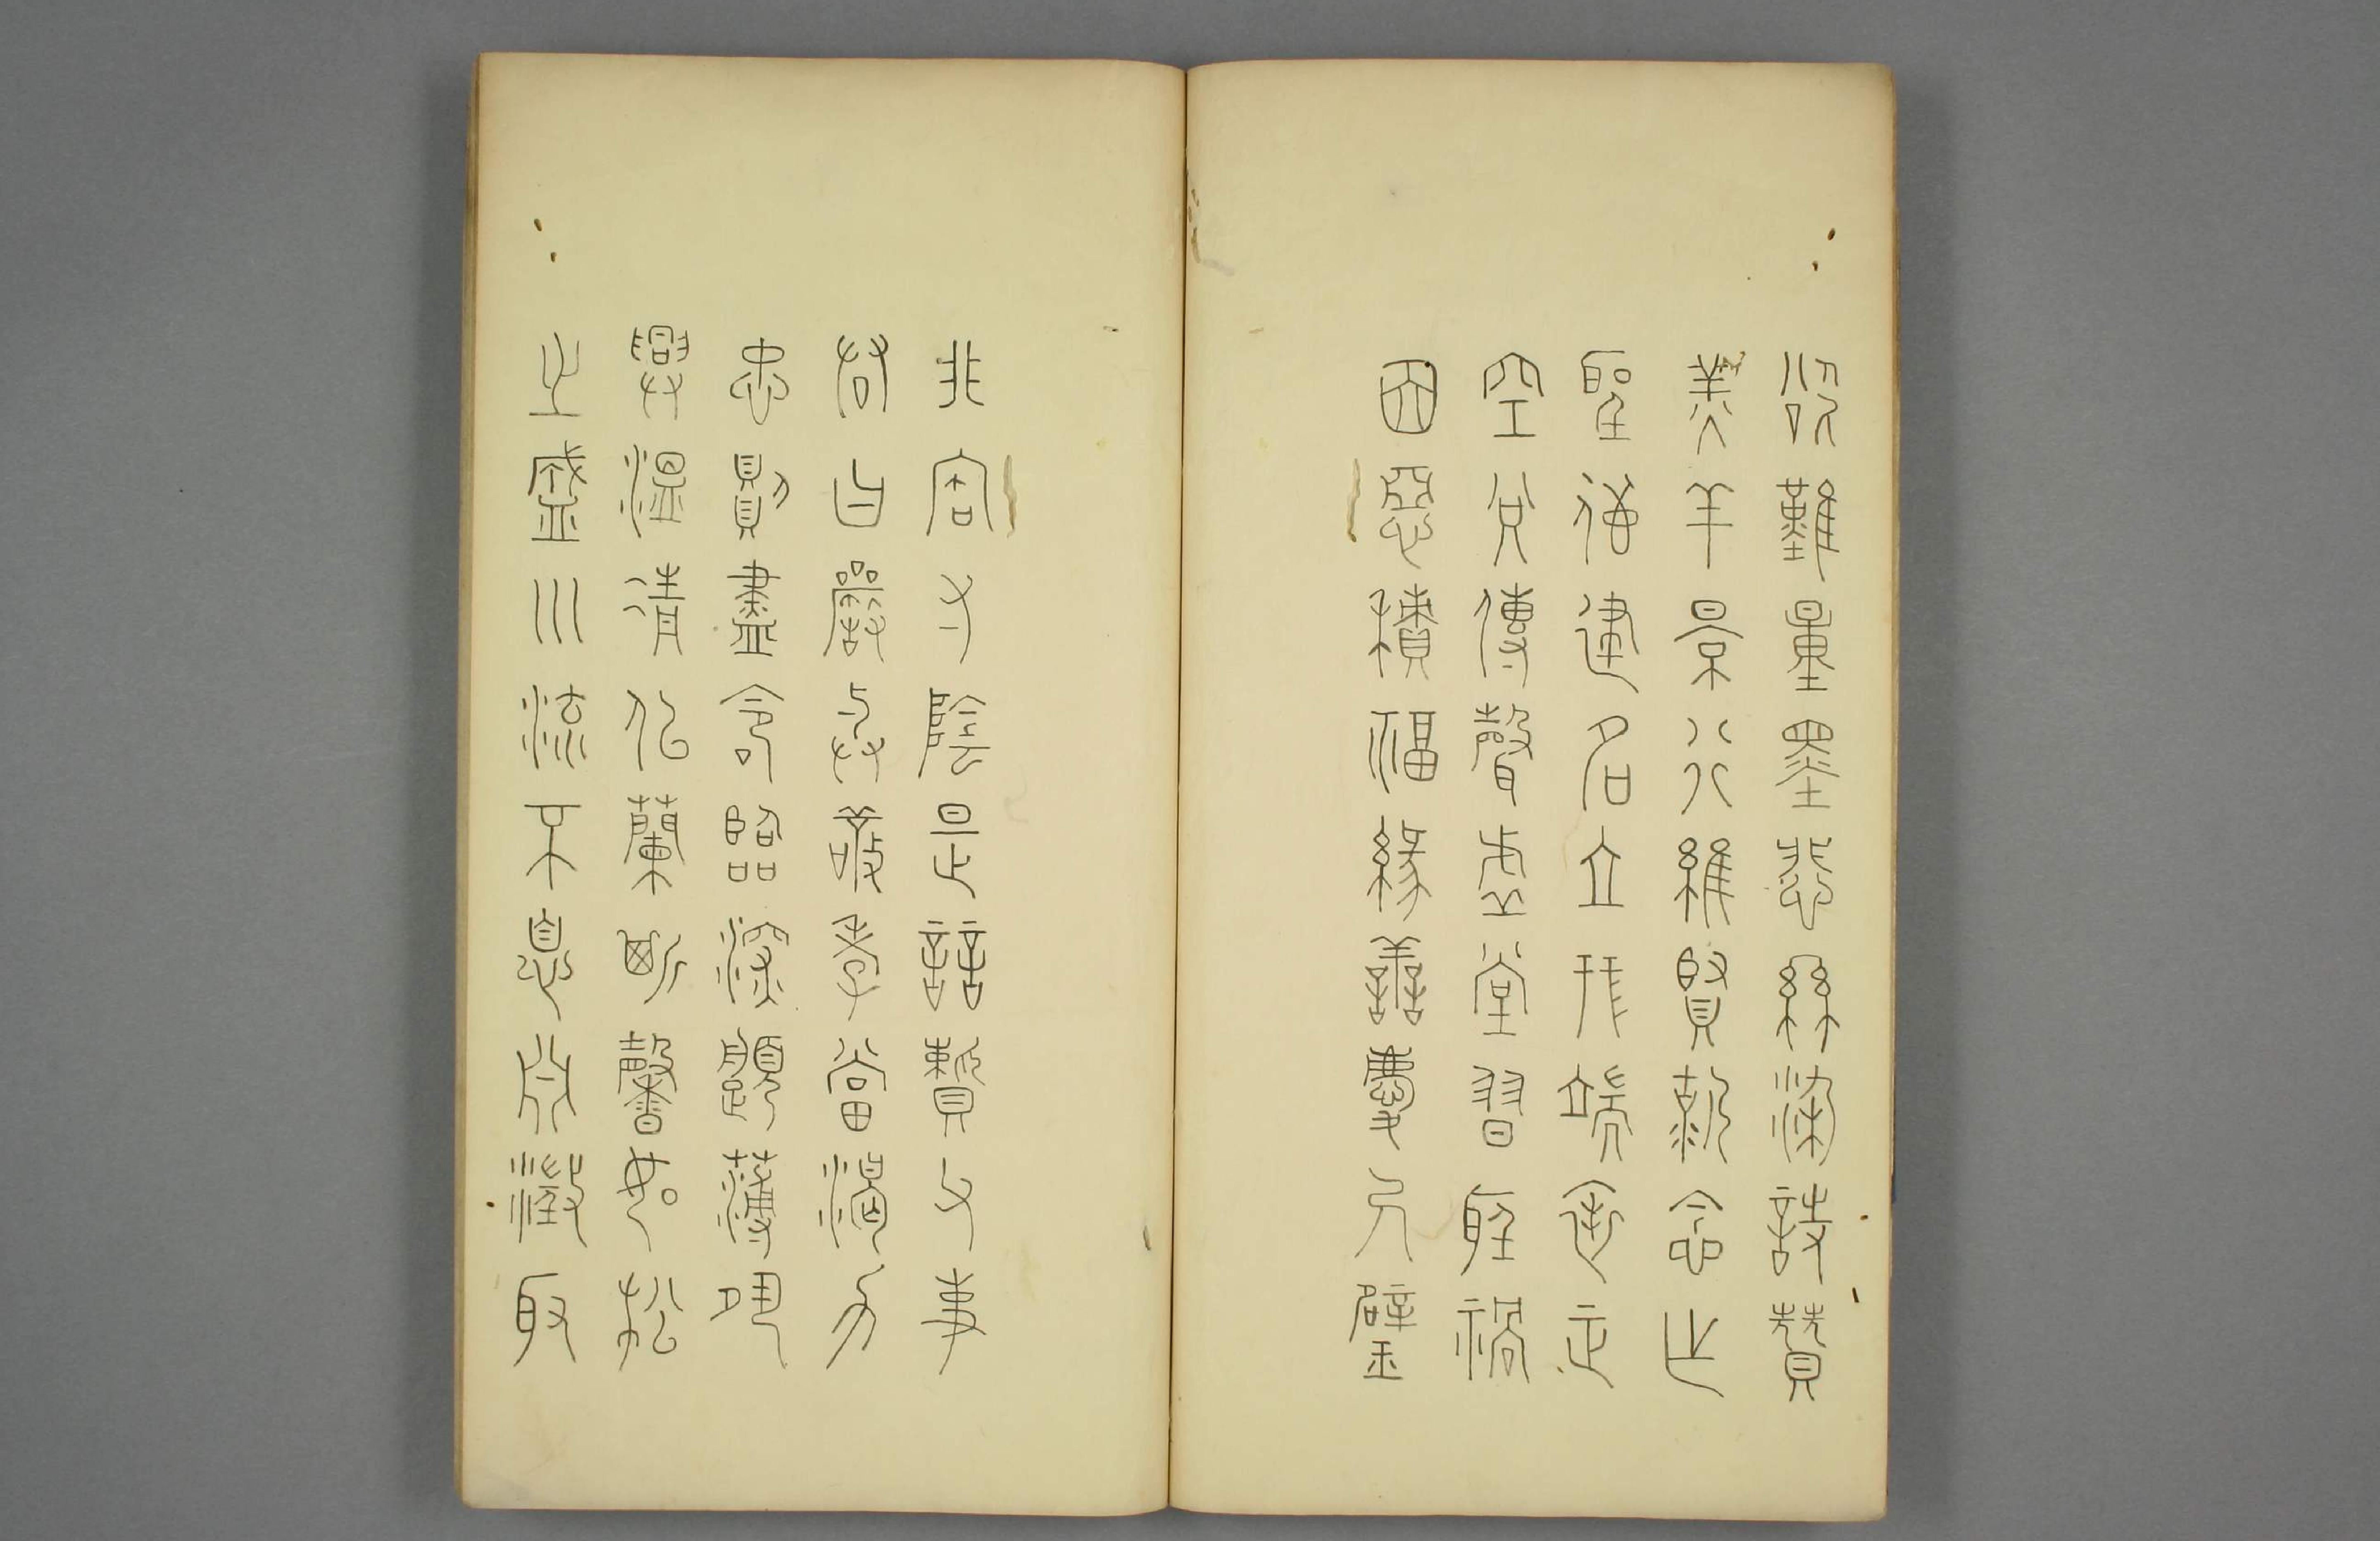 欲難量墨悲絲染詩讚
羔羊景行維賢剋念作
聖德建名立形端表正
空谷傳聲虛堂習聽禍
因惡積福緣善慶尺璧
非寶寸陰是競資父事
君曰嚴與敬孝當竭力
忠則盡命臨深履薄夙
興溫凊似蘭斯馨如松
之盛川流不息淵澄取